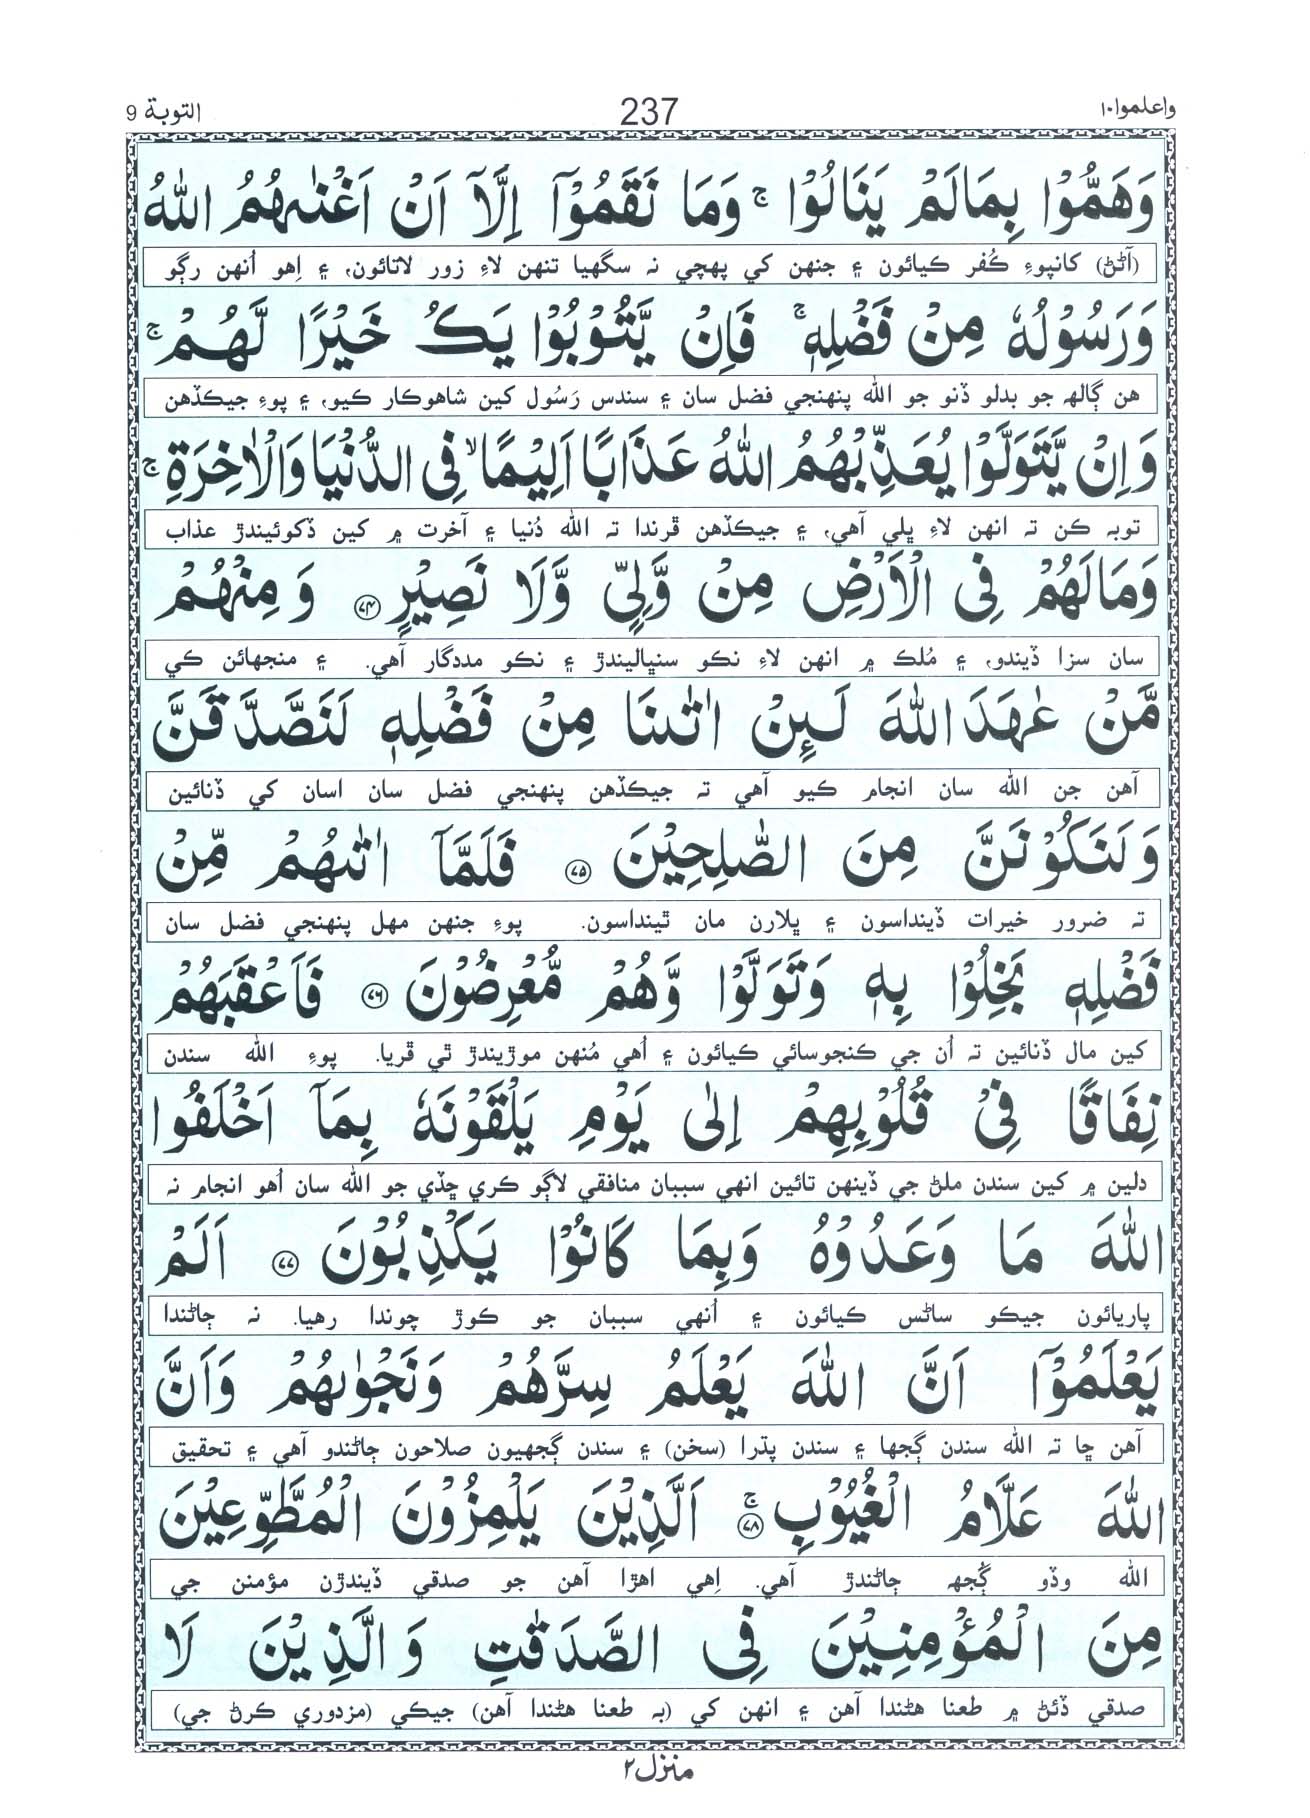 واعلموا۱۰
237
التوبة 9
وَهَمُّوۡا بِمَالَمۡ يَنَالُوۡا ۚ وَمَا نَقَمُوۡۤا اِلَّاۤ اَنۡ اَغۡنٰٮهُمُ اللّٰهُ
(آڻڻ) کانپوءِ ڪُفر ڪيائون ۽ جنهن کي پهچي نہ سگهيا تنهن لاءِ زور لاتائون، ۽ اِهو اُنهن رڳو
وَرَسُوۡلُهٗ مِنۡ فَضۡلِهٖ ۚ فَاِنۡ يَّتُوۡبُوۡا يَكُ خَيۡرًا لَّهُمۡ ۚ
هن ڳالهہ جو بدلو ڏنو جو الله پنهنجي فضل سان ۽ سندس رَسُول کين شاهوڪار ڪيو، ۽ پوءِ جيڪڏهن
وَاِنۡ يَّتَوَلَّوۡا يُعَذِّبۡهُمُ اللّٰهُ عَذَابًا اَلِيۡمًا ۙ فِى الدُّنۡيَا وَالۡاٰخِرَةِ ۚ
توبہ ڪن تہ انهن لاءِ ڀلي آهي، ۽ جيڪڏهن ڦرندا تہ الله دُنيا ۽ آخرت ۾ کين ڏکوئيندڙ عذاب
وَمَا لَهُمۡ فِى الۡاَرۡضِ مِنۡ وَّلِىٍّ وَّلَا نَصِيۡرٍ ۷۴ وَمِنۡهُمۡ
سان سزا ڏيندو، ۽ مُلڪ ۾ انهن لاءِ نڪو سنڀاليندڙ ۽ نڪو مددگار آهي. ۽ منجهائن کي
مَّنۡ عٰهَدَ اللّٰهَ لَـئِنۡ اٰتٰٮنَا مِنۡ فَضۡلِهٖ لَنَصَّدَّقَنَّ
آهن جن الله سان انجام ڪيو آهي تہ جيڪڏهن پنهنجي فضل سان اسان کي ڏنائين
وَلَنَكُوۡنَنَّ مِنَ الصّٰلِحِيۡنَ ۷۵ فَلَمَّاۤ اٰتٰٮهُمۡ مِّنۡ
تہ ضرور خيرات ڏينداسون ۽ ڀلارن مان ٿينداسون. پوءِ جنهن مهل پنهنجي فضل سان
فَضۡلِهٖ بَخِلُوۡا بِهٖ وَتَوَلَّوۡا وَّهُمۡ مُّعۡرِضُوۡنَ ۷۶ فَاَعۡقَبَهُمۡ
کين مال ڏنائين تہ اُن جي ڪنجوسائي ڪيائون ۽ اُهي مُنهن موڙيندڙ ٿي ڦريا. پوءِ الله سندن
نِفَاقًا فِىۡ قُلُوۡبِهِمۡ اِلٰى يَوۡمِ يَلۡقَوۡنَهٗ بِمَاۤ اَخۡلَفُوا
دلين ۾ کين سندن ملڻ جي ڏينهن تائين انهي سببان منافقي لاڳو ڪري ڇڏي جو الله سان اُهو انجام نہ
اللّٰهَ مَا وَعَدُوۡهُ وَبِمَا كَانُوۡا يَكۡذِبُوۡنَ ۷۷ اَلَمۡ
پاريائون جيڪو ساڻس ڪيائون ۽ اُنهي سببان جو ڪوڙ چوندا رهيا. نہ ڄاڻندا
يَعۡلَمُوۡۤا اَنَّ اللّٰهَ يَعۡلَمُ سِرَّهُمۡ وَنَجۡوٰٮهُمۡ وَاَنَّ
آهن ڇا تہ الله سندن ڳجها ۽ سندن پڌرا (سخن) ۽ سندن ڳجهيون صلاحون ڄاڻندو آهي ۽ تحقيق
اللّٰهَ عَلَّامُ الۡغُيُوۡبِ ۚ ۷۸ اَلَّذِيۡنَ يَلۡمِزُوۡنَ الۡمُطَّوِّعِيۡنَ
الله وڏو ڳُجهہ ڄاڻندڙ آهي. اِهي اهڙا آهن جو صدقي ڏيندڙن مؤمنن جي
مِنَ الۡمُؤۡمِنِيۡنَ فِى الصَّدَقٰتِ وَالَّذِيۡنَ لَا
صدقي ڏئڻ ۾ طعنا هڻندا آهن ۽ انهن کي (بہ طعنا هڻندا آهن) جيڪي (مزدوري ڪرڻ جي)
منزل۲